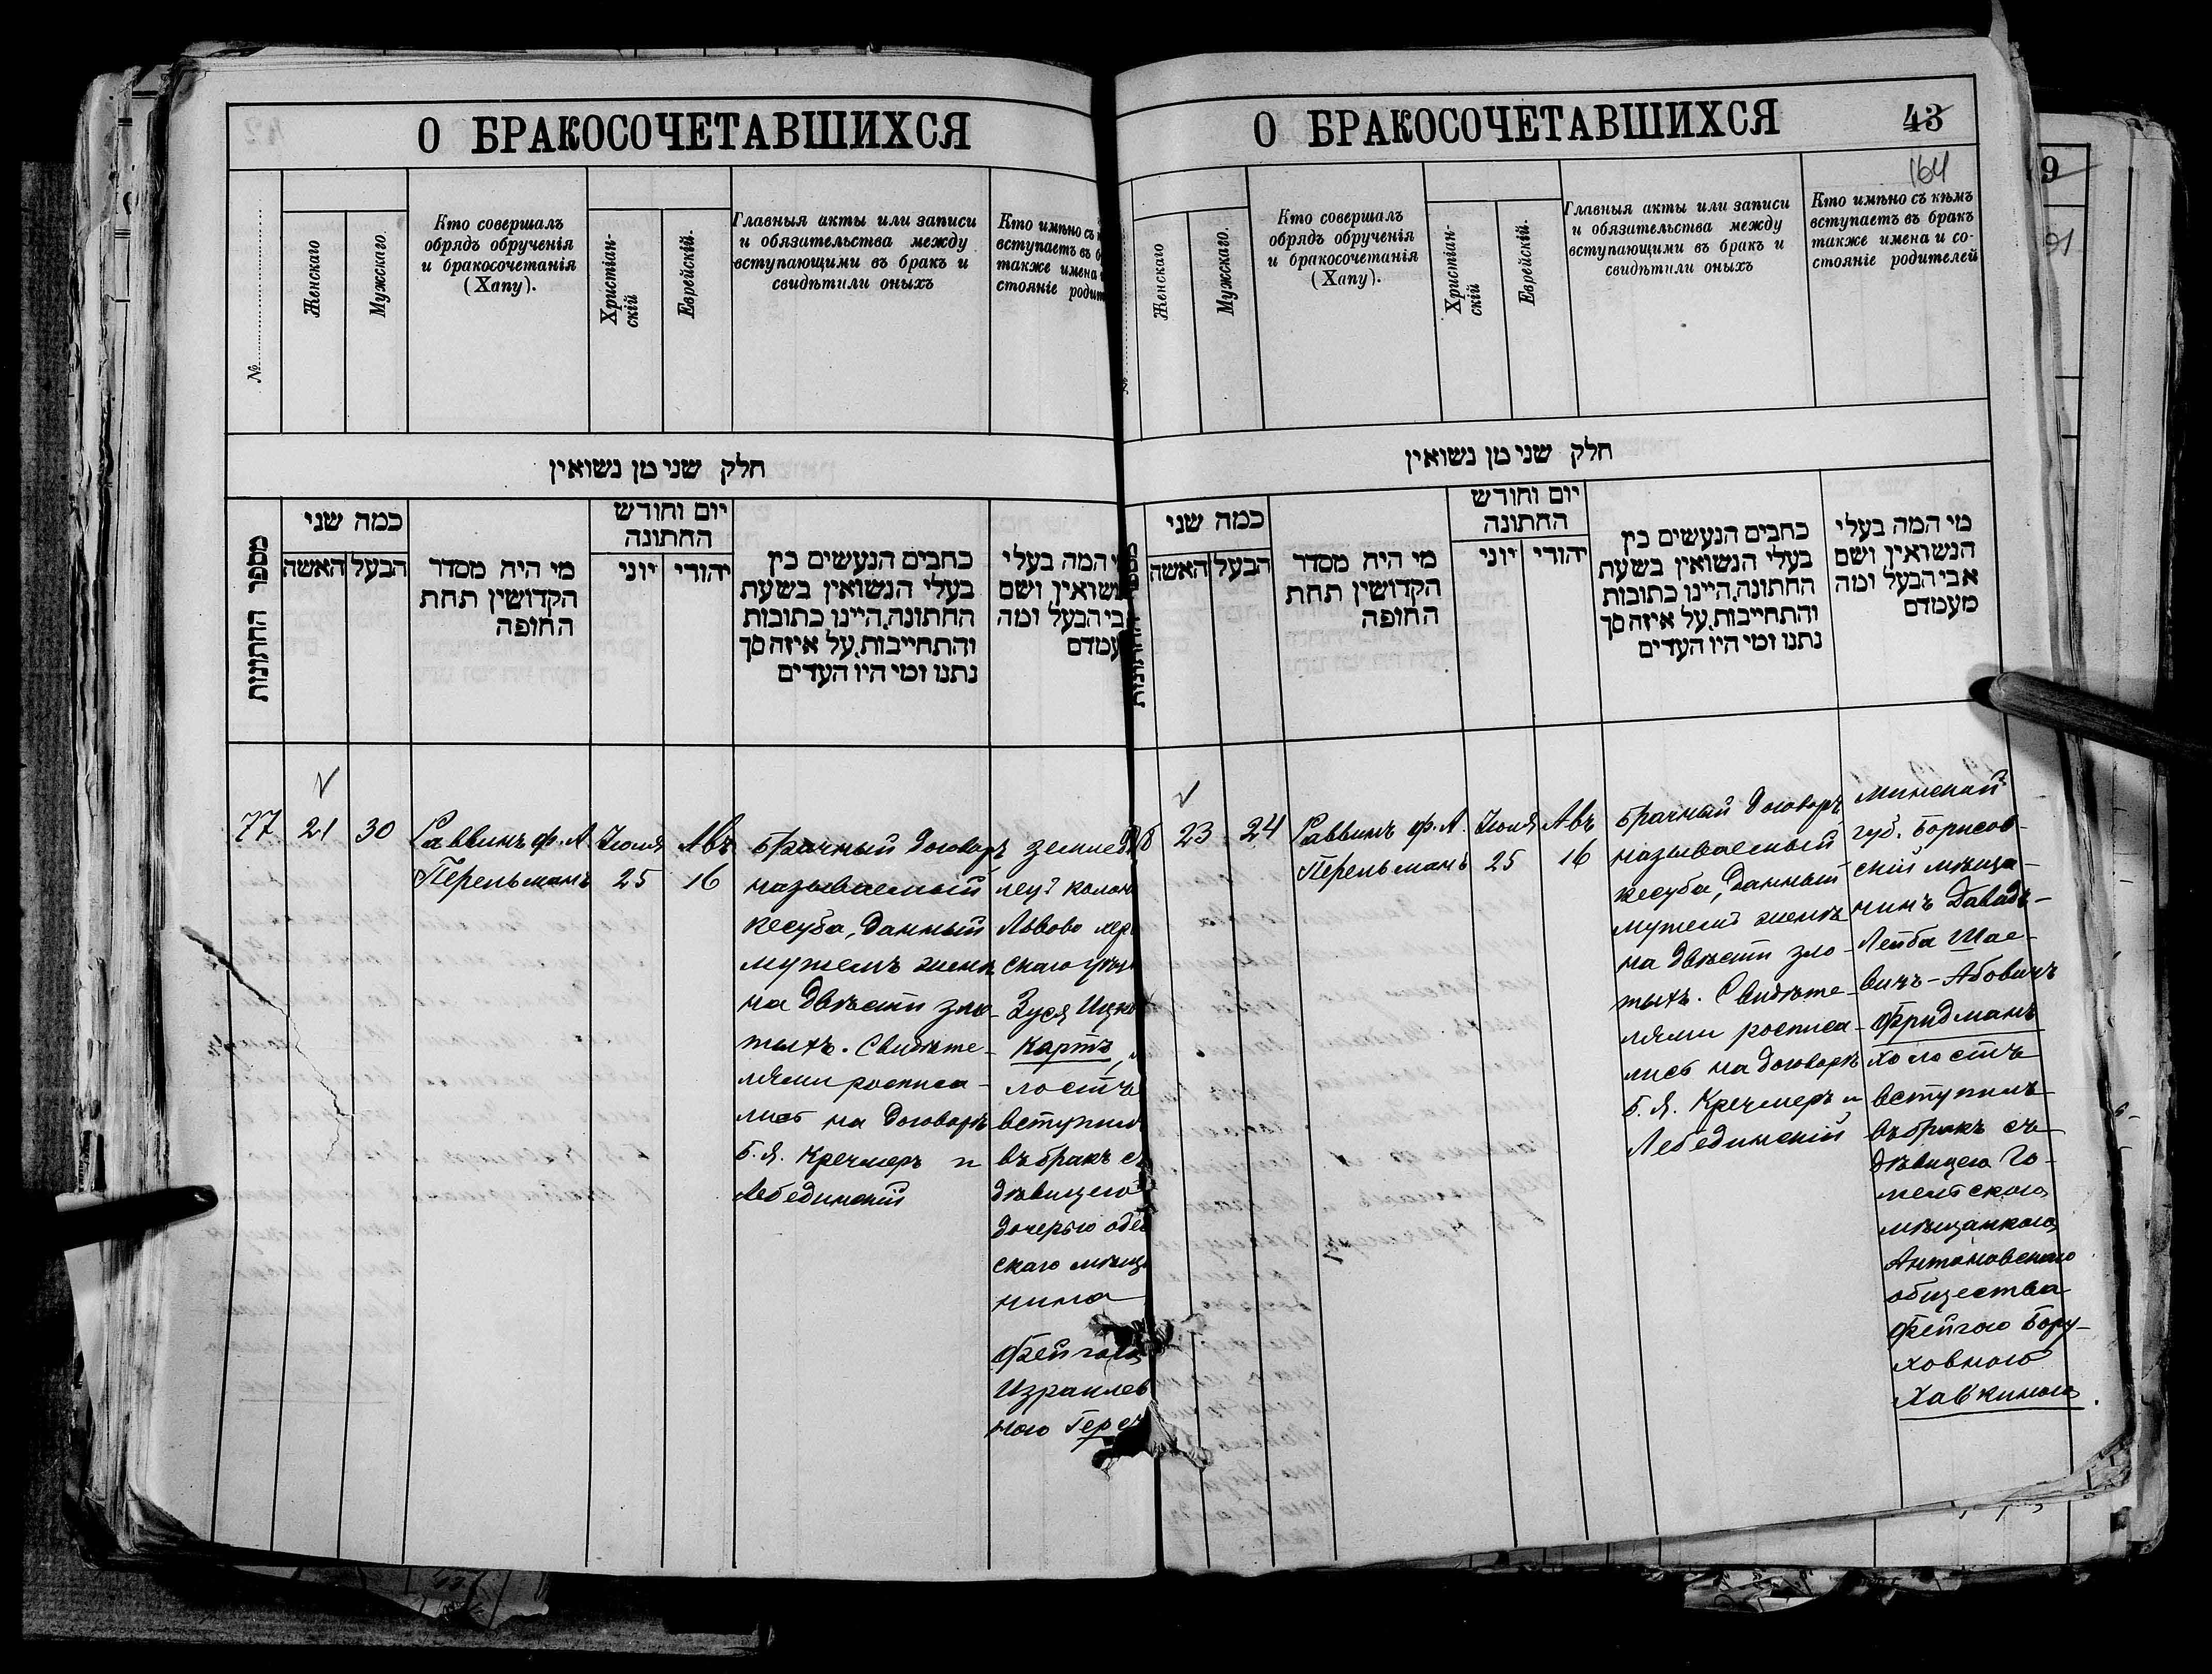 О БРАКОСОЧЕТАВШИХСЯ
№
Женскаго
Мужскаго
Кто совершалъ
обрядъ обрученія
и бракосочетанія
(Хапу).
Христіан-
скій
Еврейскій.
Главныя акты или записи
и обязательства между
вступающими въ бракъ и
свидѣтили оныхъ
Кто имѣно съ
вступаетъ въ
также имена
стояніе
חלק שני מן נשואין
מספר החתונות
כמה שני
האשה
הבעל
מי היה מסדר
הקדושין תחת
החופה
יום וחודש
החתונה
יוני
יהודי
כתבים הנעשים בין
בעלי הנשואין בשעת
החתונה, היינו כתובות
והתחייבות, על איזה סך
נתנו ומי היו העדים
המה בעלי
ושם
הבעל ומה
77
21
30
Раввинъ Ф. А.
Перельманъ
Іюля
25
Авъ
16
Брачный договоръ
называемый
кесуба, данный
мужемъ женѣ
на двѣсти зло-
тыхъ. Свидѣте-
лями росписа-
лись на договорѣ
Б. Я. Кречмеръ и
Лебединскій
Львово
скаго
Зуся
Картъ,
вступилъ
въ бракъ
дѣвицею
дочерью
скаго
нина
Фейгою
ною
О БРАКОСОЧЕТАВШИХСЯ
43
164
Женскаго
Мужскаго.
Кто совершалъ
обрядъ обрученія
и бракосочетанія
(Хапу).
Христіан-
скій
Еврейскій.
Главныя акты или записи
и обязательства между
вступающими въ бракъ и
свидѣтили оныхъ
Кто имѣно съ кѣмъ
вступаетъ въ бракъ
также имена и со-
стояніе родителей
חלק שני מן נשואין
כמה שני
האשה
הבעל
מי היה מסדר
הקדושין תחת
החופה
יום וחודש
החתונה
יוני
יהודי
כתבים הנעשים בין
בעלי הנשואין בשעת
החתונה, היינו כתובות
והתחייבות, על איזה סך
נתנו ומי היו העדים
מי המה בעלי
הנשואין ושם
אבי הבעל ומה
מעמדם
23
24
Раввинъ Ф. А.
Перельманъ
Іюля
25
Авъ
16
Брачный договоръ
называемый
кесуба, данный
мужемъ женѣ
на двѣсти зло-
тыхъ. Свидѣте-
лями росписа-
лись на договорѣ
Б. Я. Кречмеръ и
Лебединскій
Минской
губ. Борисов-
скій мѣща-
нинъ Давидъ-
Лейба Шае-
вичъ-Абовичъ
Фридманъ
холостъ
вступилъ
въ бракъ съ
дѣвицею Го-
мельскою
мѣщанкою
Антоновскаго
общества
Фейгою Бору-
ховною
Хавкиною.
9